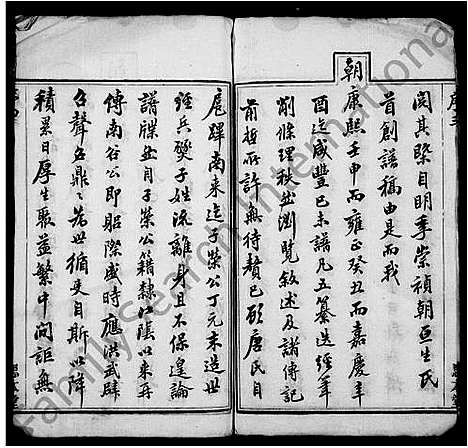 閱其槩自明季崇禎朝亘生氏
首創譜稱由是而我
朝康熙壬申而雍正癸丑而嘉慶辛
酉迄咸豐己未譜凡五纂迭經年
削條理秩然瀏覽敘述及諸傳記
前哲所許無待贅已顧唐氏自
扈蹕南來迄子榮公丁元末造世
經兵燹子姓流離身且不保遑論
譜牒並自子榮公籍隸江陰以來再
傳南谷公即躬際盛時應洪武辟
召聲名鼎鼎世循吏自斯以降
積累日厚生聚益繁中間詎無
FamilySearch International